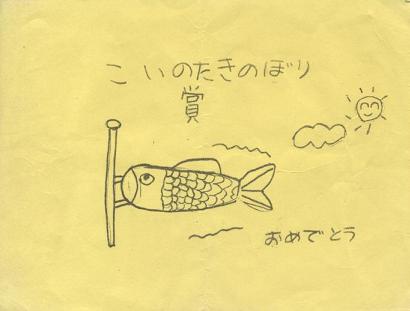 こいのたきのぼり
賞
おめでとう